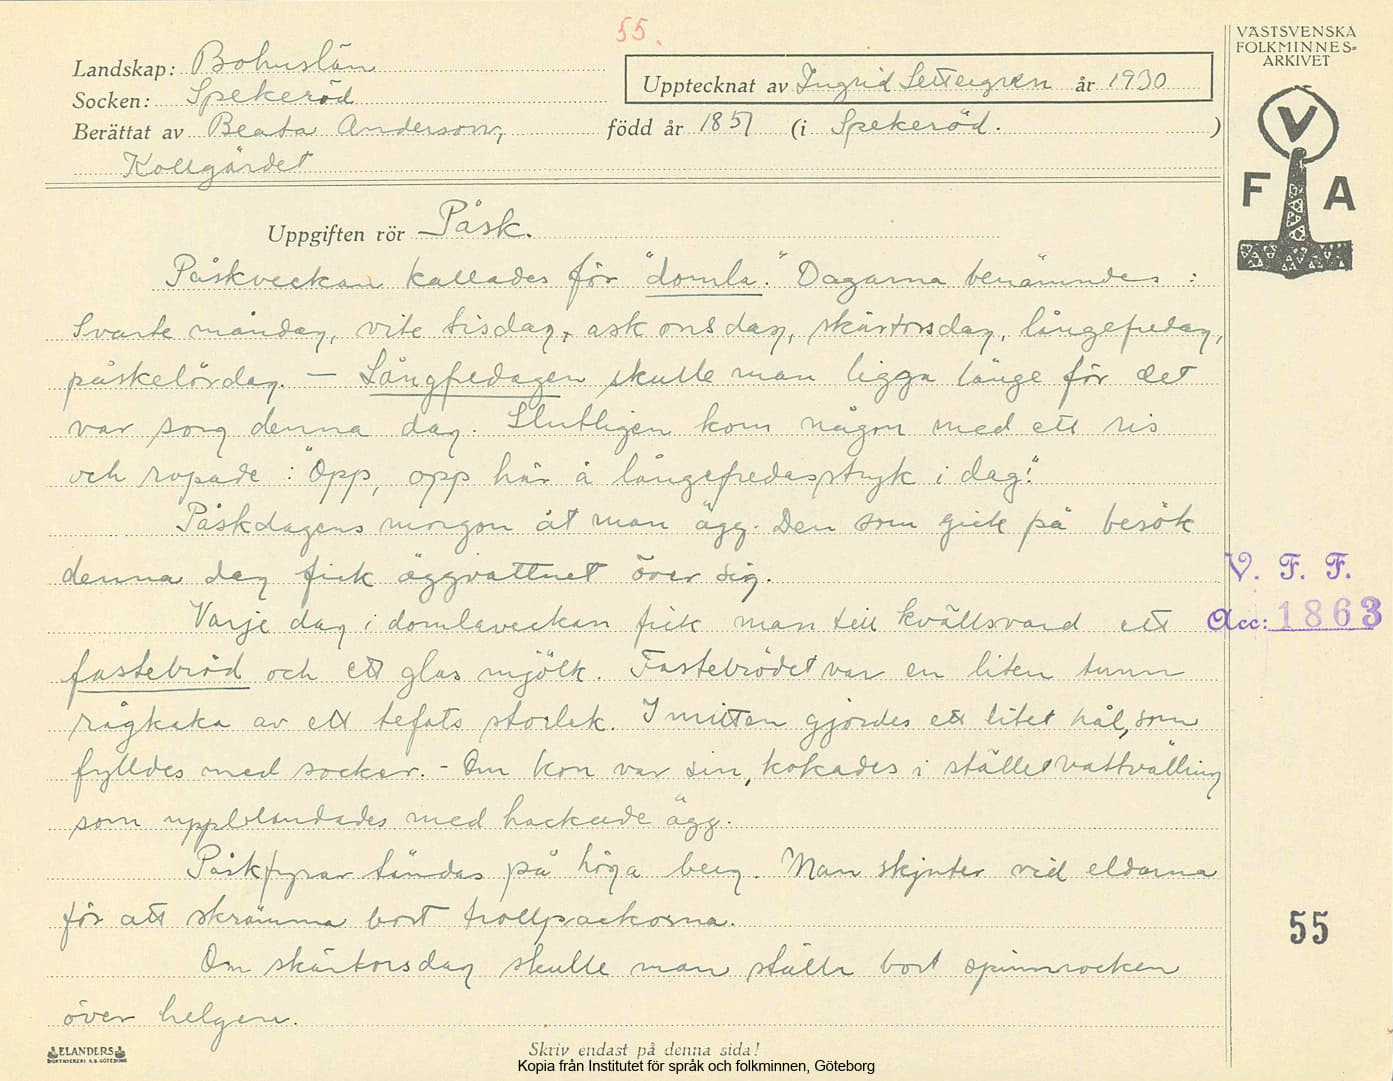 55.
VÄSTSVENSKA
FOLKMINNES-
ARKIVET
Landskap: Bohuslän
Upptecknat av Ingrid Settergren år 1930
Socken: Spekeröd
Berättat av Beata Anderson, född år 1851 (i Spekeröd. )
Kollgärdet
V
F A
Uppgiften rör Påsk.
Påskveckan kallades för "domla." Dagarna benämndes :
Svarte måndag, vite tisdag, ask onsdag, skärtorsdag, långefredag,
påskelördag. — Långfredagen skulle man ligga länge för det
var sorg denna dag. Slutligen kom någon med ett ris
och ropade : "Opp, opp här å långefredasstryk i dag!"
Påskdagens morgon åt man ägg. Den som gick på besök
denna dag fick äggvattnet över sig.
V. F. F.
Acc: 1863
Varje dag i domlaveckan fick man till kvällsvard ett
fastebröd och ett glas mjölk. Fastebrödet var en liten tunn
rågkaka av ett tefats storlek. I mitten gjordes ett litet hål, som
fylldes med socker. - Om kon var sin, kokades i stället vattvälling
som uppblandades med hackade ägg.
Påskfyrar tändas på höga berg. Man skjuter vid eldarna
för att skrämma bort trollpackorna.
55
Om skärtorsdag skulle man ställa bort spinnrocken
över helgen.
ELANDERS
BOKTRYCKERI A.B. GÖTEBORG
Skriv endast på denna sida!
Kopia från Institutet för språk och folkminnen, Göteborg